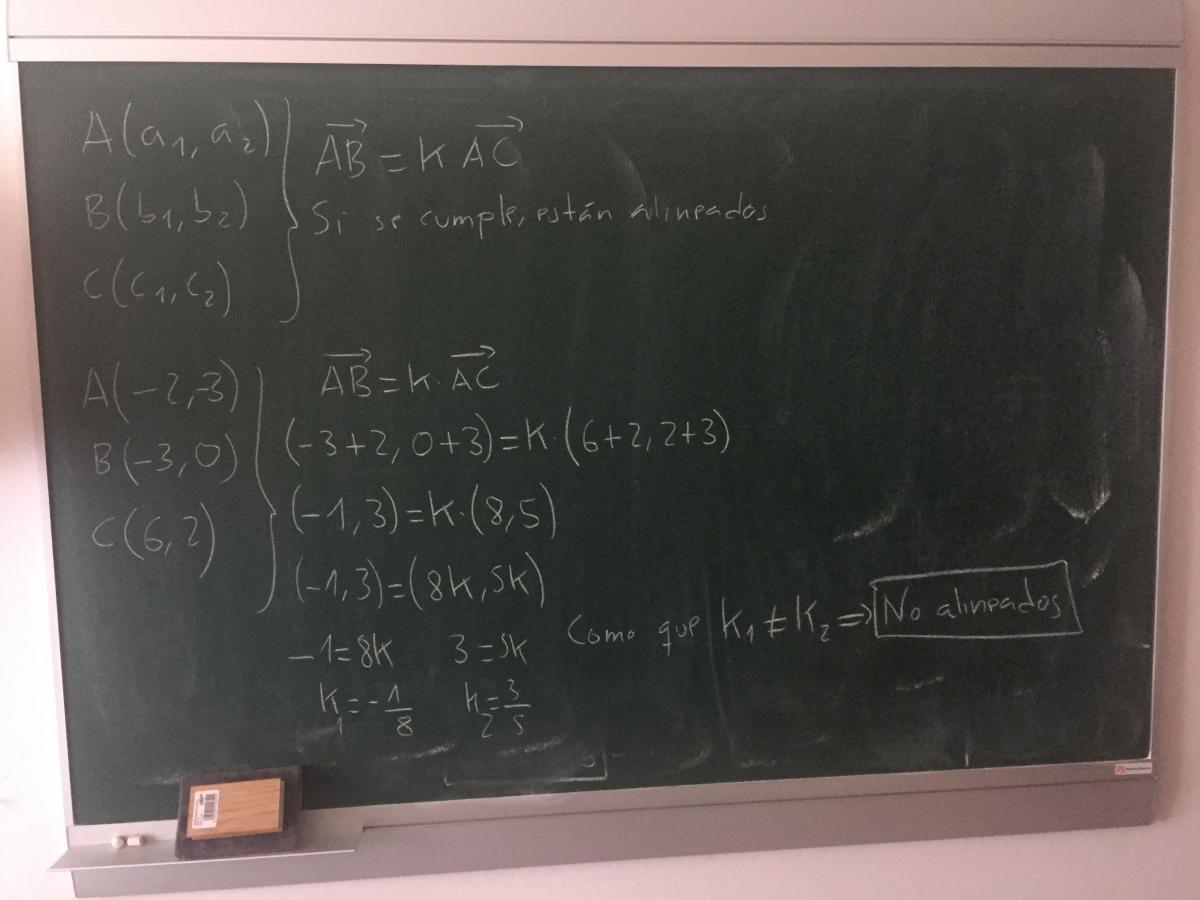 A(a₁, a₂)
B(b₁, b₂)
C(c₁, c₂)
AB = K AC
Si se cumple, están alineados
A(-2,-3)
B(-3,0)
C(6,2)
AB = K · AC
(-3+2, 0+3) = K · (6+2, 2+3)
(-1,3) = K · (8,5)
(-1,3) = (8K, 5K)
-1=8K 3=5K
K₁ = -1/8 K₂ = 3/5
Como que K₁ ≠ K₂ ⇒ No alineados